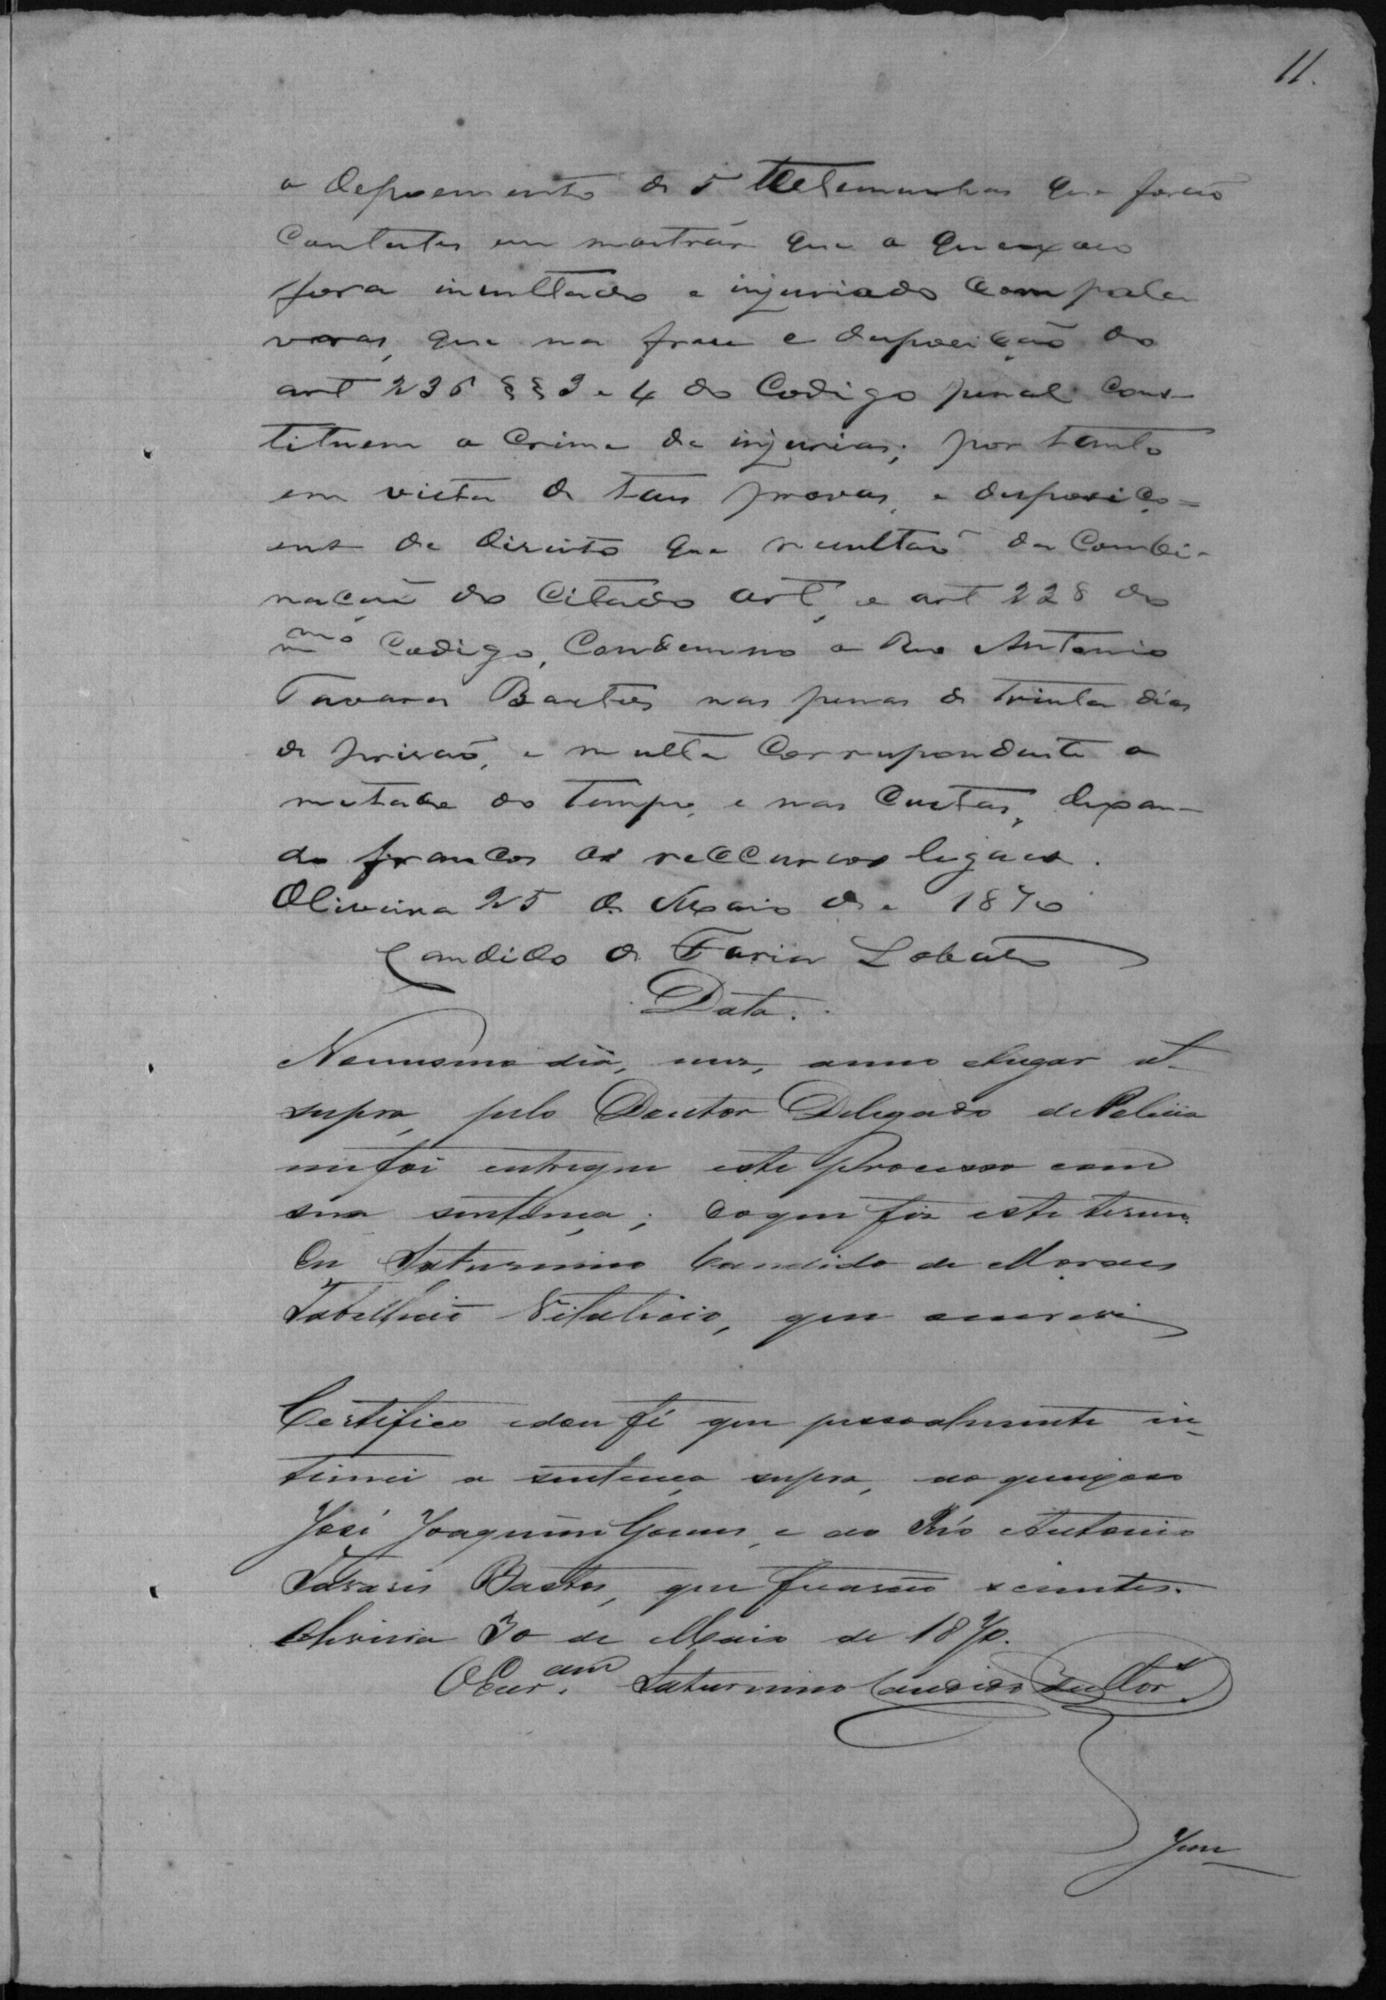 11.
o depoemento de 5 Tetemunhas que forão
contestes em mostrár que o queixoso
fora insultado e injuriado com pala
vras, que na frase e desposição do
art 236 §§ 3 e 4 do Codigo penal cons-
tituem o crime de injurias; por tanto
em vista de taes provas, e desposiço-
ens de direito que resultão da Combi-
nacão do citado art, e art 228 do
mmo Codigo, Condemno o Reo Antonio
Tavares Bastos nas penas de trinta dias
de prisão, e multa correspondente a
metade do tempo, e nas custas, dexan-
do francos os reccursos legaes.
Oliveira 25 de Maio de 1870
Candido de Faria Lobato
Data.
No mesmo dia, mez, anno e lugar ut
supra, pelo Doutor Delegado de Policia
me foi entregue este processo com
sua sentença; do que fiz este termo.
Eu Saturnino Candido de Moraes
Tabellião Vitalicio, que escrevi
Certifico e dou fé que pessoalmente in-
timei a sentença supra, ao queixoso
José Joaquim Gomes, e ao Réo Antonio
Tavares Bastos, que ficarão scientes.
Oliveira 30 de Maio de 1870.
O Escr.am Saturnino Candido de Mor.s